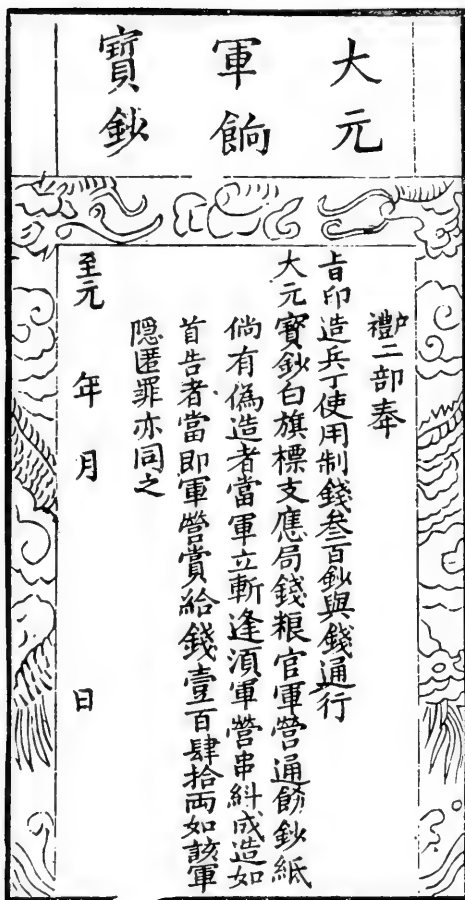 大元
軍餉
寶鈔
戶禮二部奉
旨印造兵丁使用制錢叁百鈔與錢通行
大元寳鈔白旗標支應局錢粮官軍營通餉鈔紙
倘有偽造者當軍立斬逢湏軍營串糾成造如
首告者當即軍營賞給錢壹百肆拾両如該軍
隠匿罪亦同之
至元 年 月 日